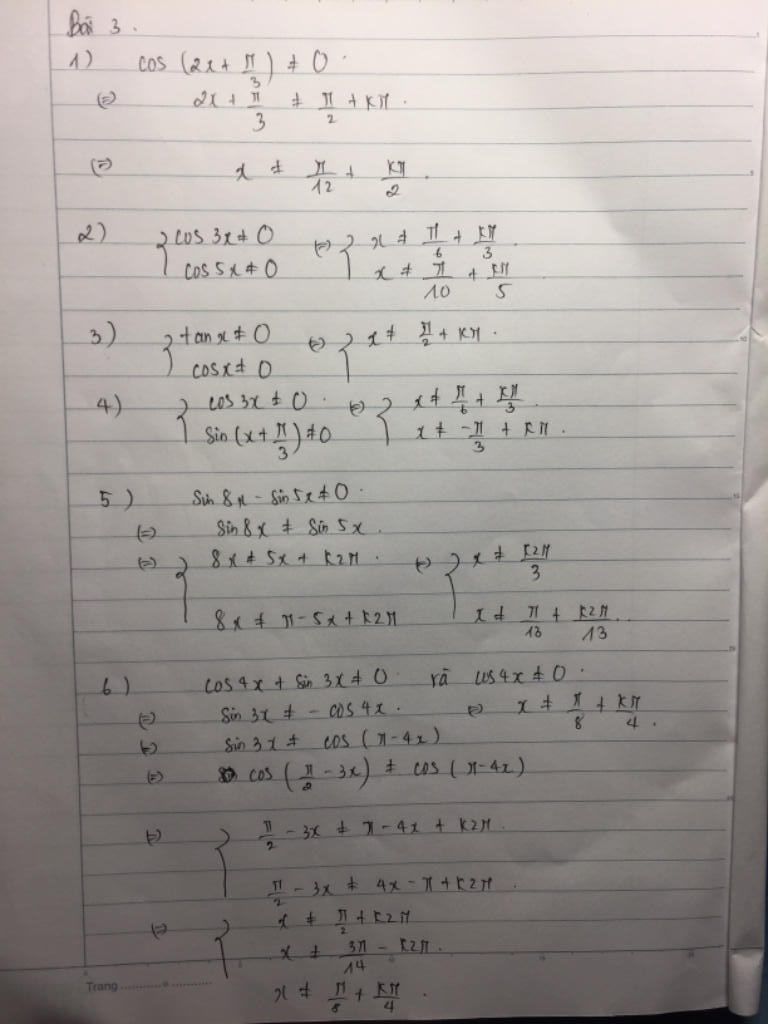 Bài 3.
1) cos (2x + π/3) ≠ 0.
(=) 2x + π/3 ≠ π/2 + kπ.
(=) x ≠ π/12 + kπ/2.
2) { cos 3x ≠ 0 (=) { x ≠ π/6 + kπ/3.
cos 5x ≠ 0 x ≠ π/10 + kπ/5
3) { tan x ≠ 0 (=) { x ≠ π/2 + kπ.
cosx ≠ 0
4) { cos 3x ≠ 0. (=) { x ≠ π/6 + kπ/3.
sin (x + π/3) ≠ 0 x ≠ -π/3 + kπ.
5) sin 8x - sin 5x ≠ 0.
(=) sin 8x ≠ sin 5x.
(=) { 8x ≠ 5x + k2π. (=) { x ≠ k2π/3
8x ≠ π - 5x + k2π x ≠ π/13 + k2π/13.
6) cos 4x + sin 3x ≠ 0. và cos 4x ≠ 0.
(=) sin 3x ≠ - cos 4x. (=) x ≠ π/8 + kπ/4.
(=) sin 3x ≠ cos (π - 4x)
(=) cos (π/2 - 3x) ≠ cos (π - 4x)
(=) { π/2 - 3x ≠ π - 4x + k2π.
π/2 - 3x ≠ 4x - π + k2π.
(=) { x ≠ π/2 + k2π
x ≠ 3π/14 - k2π.
x ≠ π/8 + kπ/4.
Trang